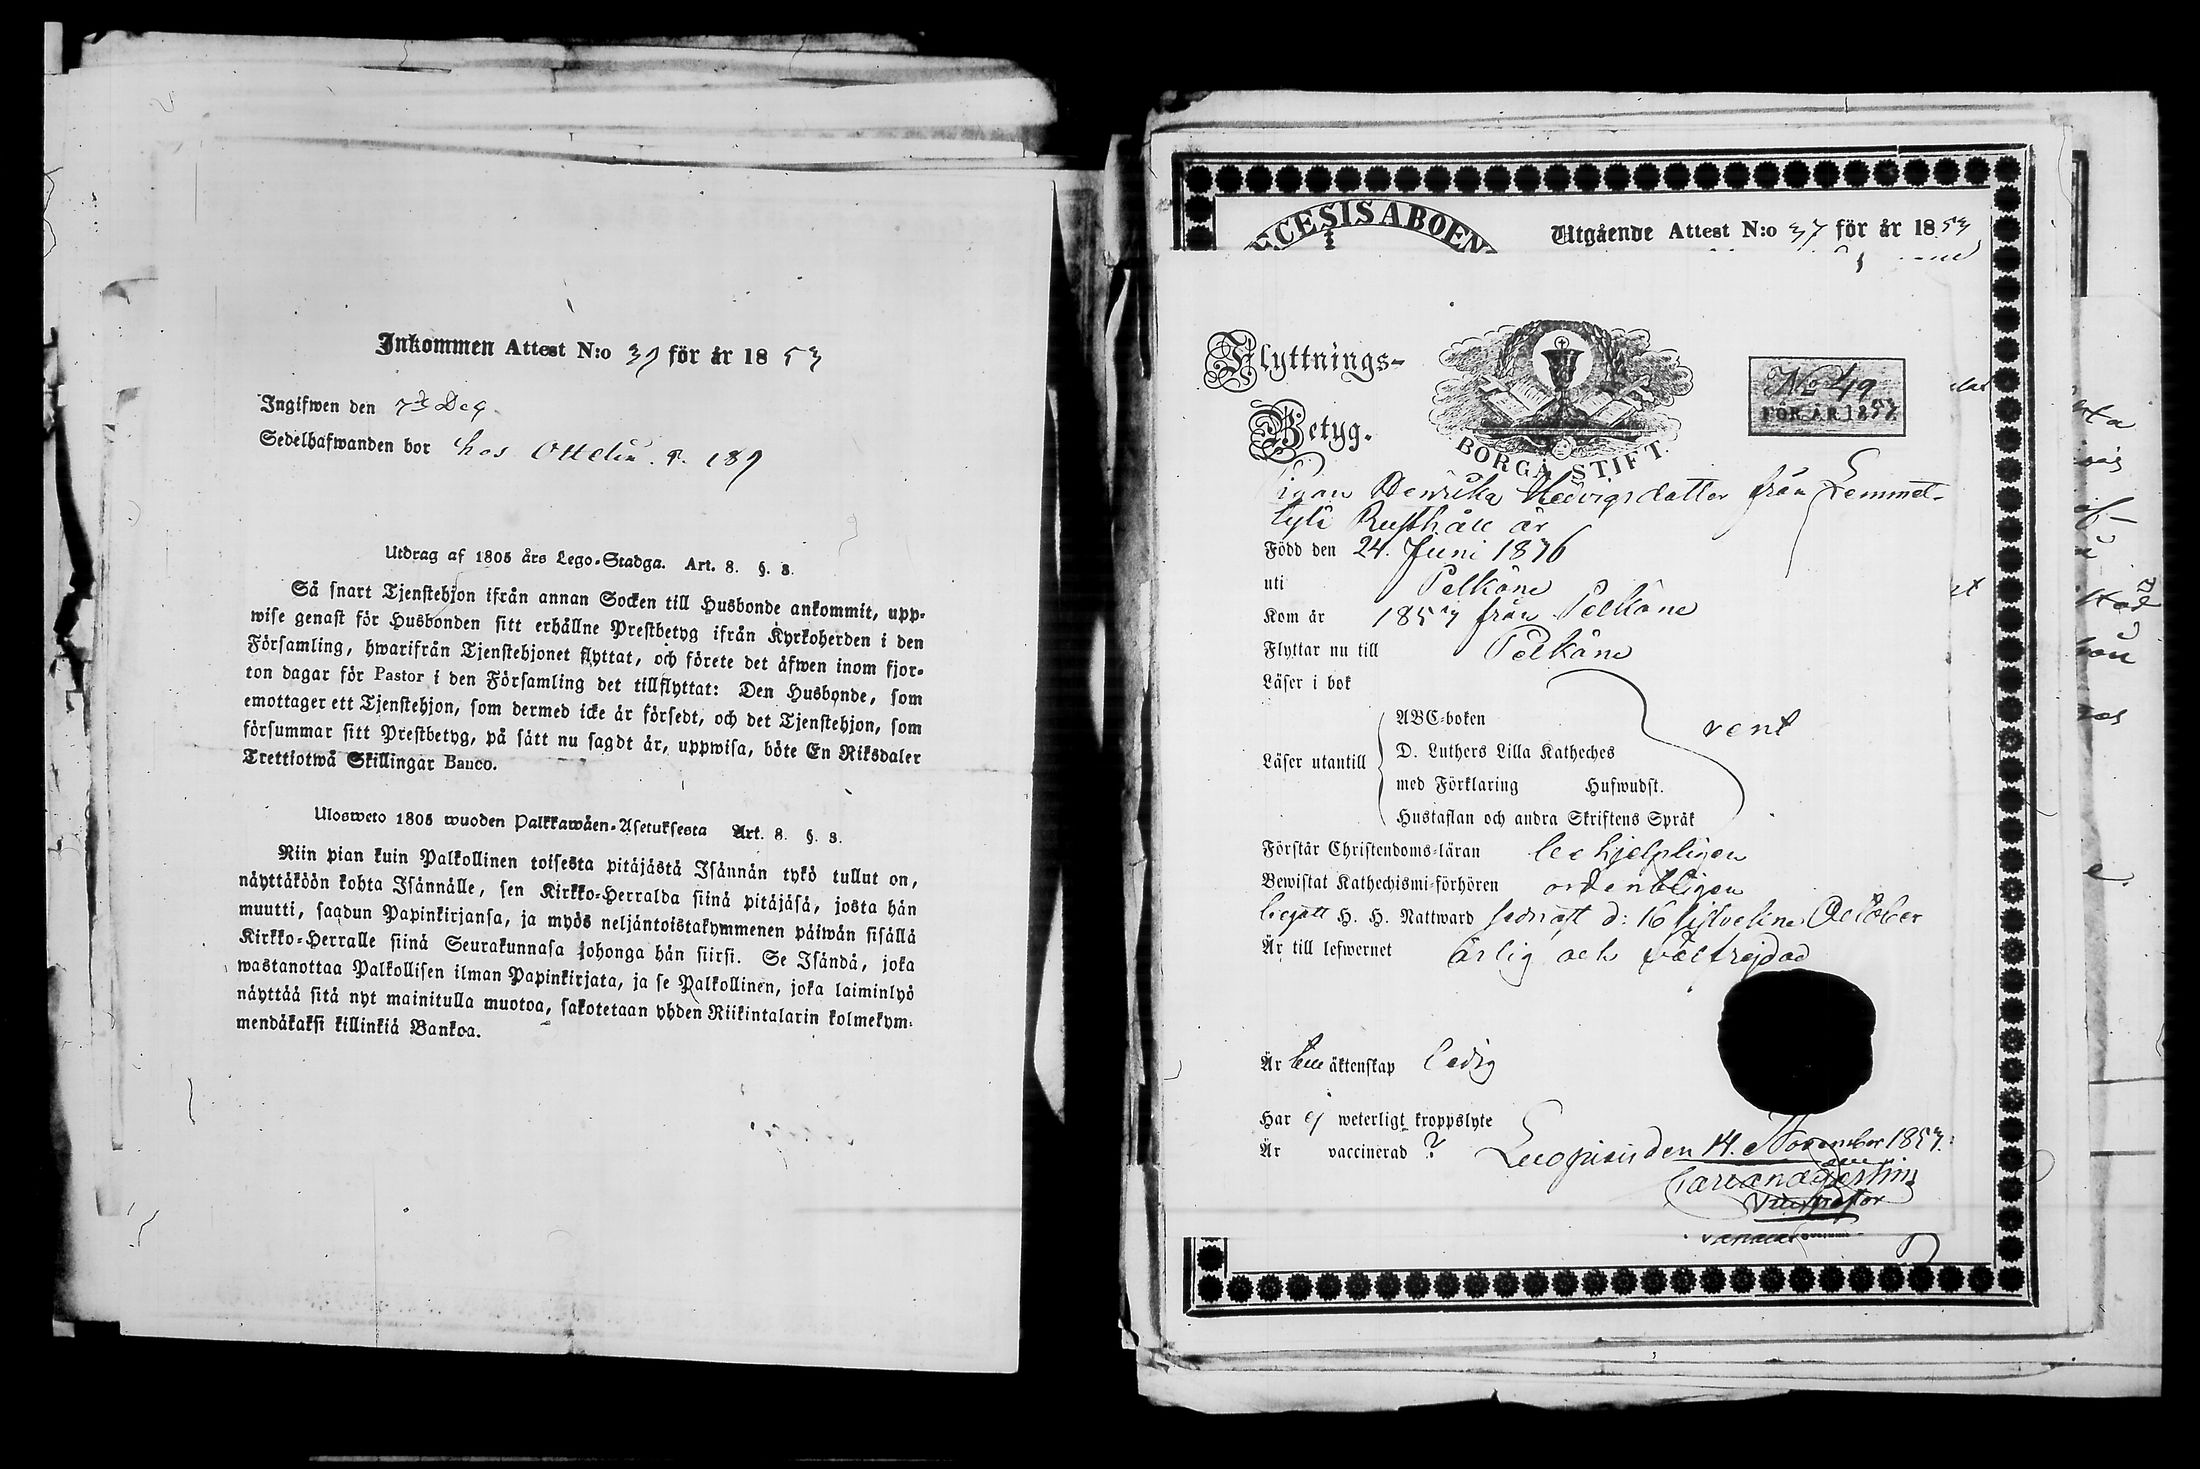 Inkommen Attest N:o 37 för år 1853
Ingifwen den 7 Dec.
Sedelhafwanden bor hos Ottelin. P. 187
Utdrag af 1805 års Lego-Stadga. Art. 8. §. 3.
Så snart Tjenstehjon ifrån annan Socken till Husbonde ankommit, upp-
wise genast för Husbonden sitt erhållne Prestbetyg ifrån Kyrkoherden i den
Församling, hwarifrån Tjenstehjonet flyttat, och förete det äfwen inom fjor-
ton dagar för Pastor i den Församling det tillflyttat: Den Husbonde, som
emottager ett Tjenstehjon, som dermed icke är försedt, och det Tjenstehjon, som
försummar sitt Prestbetyg, på sätt nu sagdt är, uppwisa, böte En Riksdaler
Trettiotwå Skillingar Banco.
Ulosweto 1805 wuoden Palkkawäen-Asetuksesta Art. 8. §. 3.
Niin pian kuin Palkollinen toisesta pitäjästä Isännän tykö tullut on,
näyttäköön kohta Isännälle, sen Kirkko-Herralda siinä pitäjäsä, josta hän
muutti, saadun Papinkirjansa, ja myös neljäntoistakymmenen päiwän sisällä
Kirkko-Herralle siinä Seurakunnasa johonga hän siirsi. Se Isändä, joka
wastanottaa Palkollisen ilman Papinkirjata, ja se Palkollinen, joka laiminlyö
näyttää sitä nyt mainitulla muotoa, sakotetaan yhden Riikintalarin kolmekym-
mendäkaksi killinkiä Bankoa.
ECESIS ABOEN
Utgående Attest N:o 37 för år 1853
Flyttnings-
Betyg.
BORGÅ STIFT.
No 49
FÖR ÅR 1853
Pigan Henrika Hedvigsdotter från Lemmet-
tylä Rusthåll är
Född den 24. Juni 1836
uti Pelkäne
Kom år 1853 från Pelkäne
Flyttar nu till Pelkäne
Läser i bok
ABC-boken
rent
Läser utantill
D. Luthers Lilla Katheches
med Förklaring Hufwudst.
Hustaflan och andra Skriftens Språk
Förstår Christendoms-läran behjelpligen
Bewistat Kathechismi-förhören ordentligen
begått H. H. Nattward sednast d: 16 October
Är till lefwernet ärlig och välfrejdad
Är till äktenskap ledig
Har ej weterligt kroppslyte
Är vaccinerad ?
Luopiois den 14. November 1853.